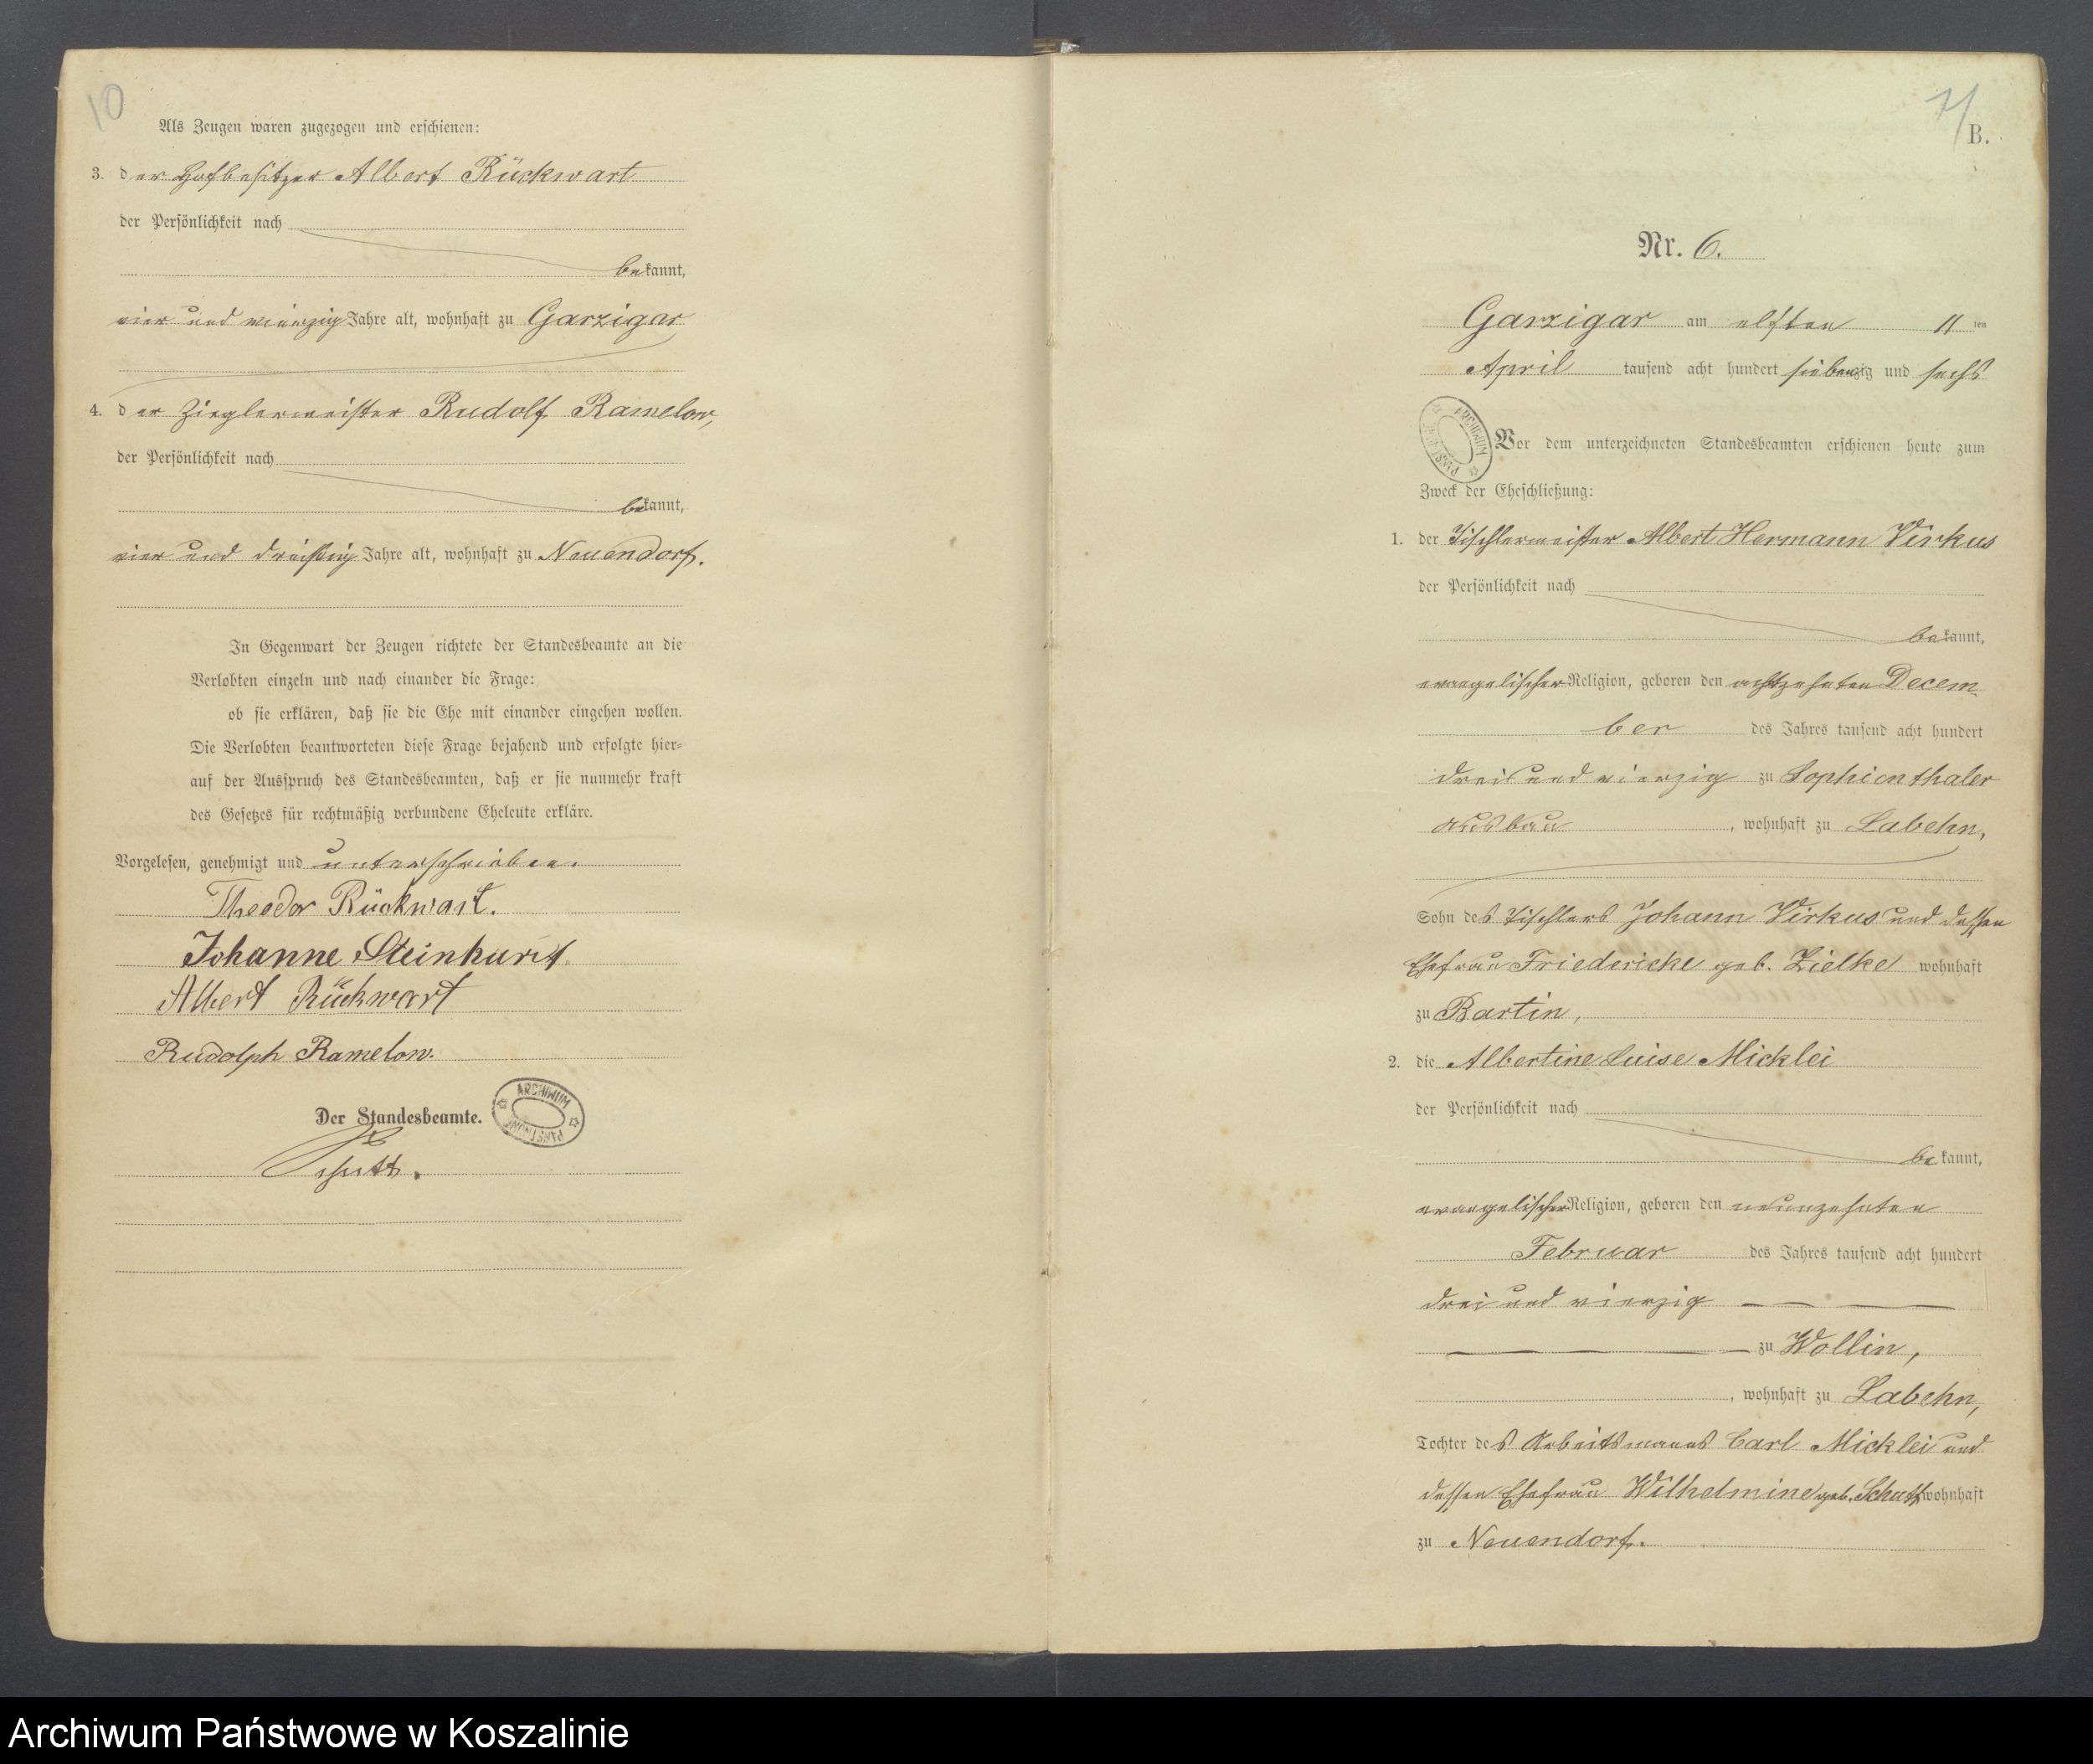 10
Als Zeugen waren zugezogen und erschienen:
3. der Hofbesitzer Albert Rückwart
der Persönlichkeit nach
bekannt,
vier und vierzig Jahre alt, wohnhaft zu Garzigar
4. der Zieglermeister Rudolf Ramelow,
der Persönlichkeit nach
bekannt,
vier und dreißig Jahre alt, wohnhaft zu Neuendorf.
In Gegenwart der Zeugen richtete der Standesbeamte an die
Verlobten einzeln und nach einander die Frage:
ob sie erklären, daß sie die Ehe mit einander eingehen wollen.
Die Verlobten beantworteten diese Frage bejahend und erfolgte hier-
auf der Ausspruch des Standesbeamten, daß er sie nunmehr kraft
des Gesetzes für rechtmäßig verbundene Eheleute erkläre.
Vorgelesen, genehmigt und unterschrieben.
Theodor Rückwart.
Johanne Steinhurst
Albert Rückwart
Rudolph Ramelow.
Der Standesbeamte.
ARCHIWUM PAŃSTWOWE
B.
Nr. 6.
Garzigar am elften 11 ten
April tausend acht hundert siebenzig und sechs
ARCHIWUM PAŃSTWOWE
Vor dem unterzeichneten Standesbeamten erschienen heute zum
Zweck der Eheschließung:
1. der Tischlermeister Albert Hermann Virkus
der Persönlichkeit nach
bekannt,
evangelischer Religion, geboren den achtzehnten Decem-
ber des Jahres tausend acht hundert
drei und vierzig zu Sophienthaler
Ausbau, wohnhaft zu Labehn,
Sohn des Tischlers Johann Virkus und dessen
Ehefrau Friedericke geb. Zielke wohnhaft
zu Bartin,
2. die Albertine Luise Micklei
der Persönlichkeit nach
bekannt,
evangelischer Religion, geboren den neunzehnten
Februar des Jahres tausend acht hundert
drei und vierzig
zu Wollin,
, wohnhaft zu Labehn,
Tochter des Arbeitsmanns Carl Micklei und
dessen Ehefrau Wilhelmine geb. Schutt wohnhaft
zu Neuendorf.
Archiwum Państwowe w Koszalinie